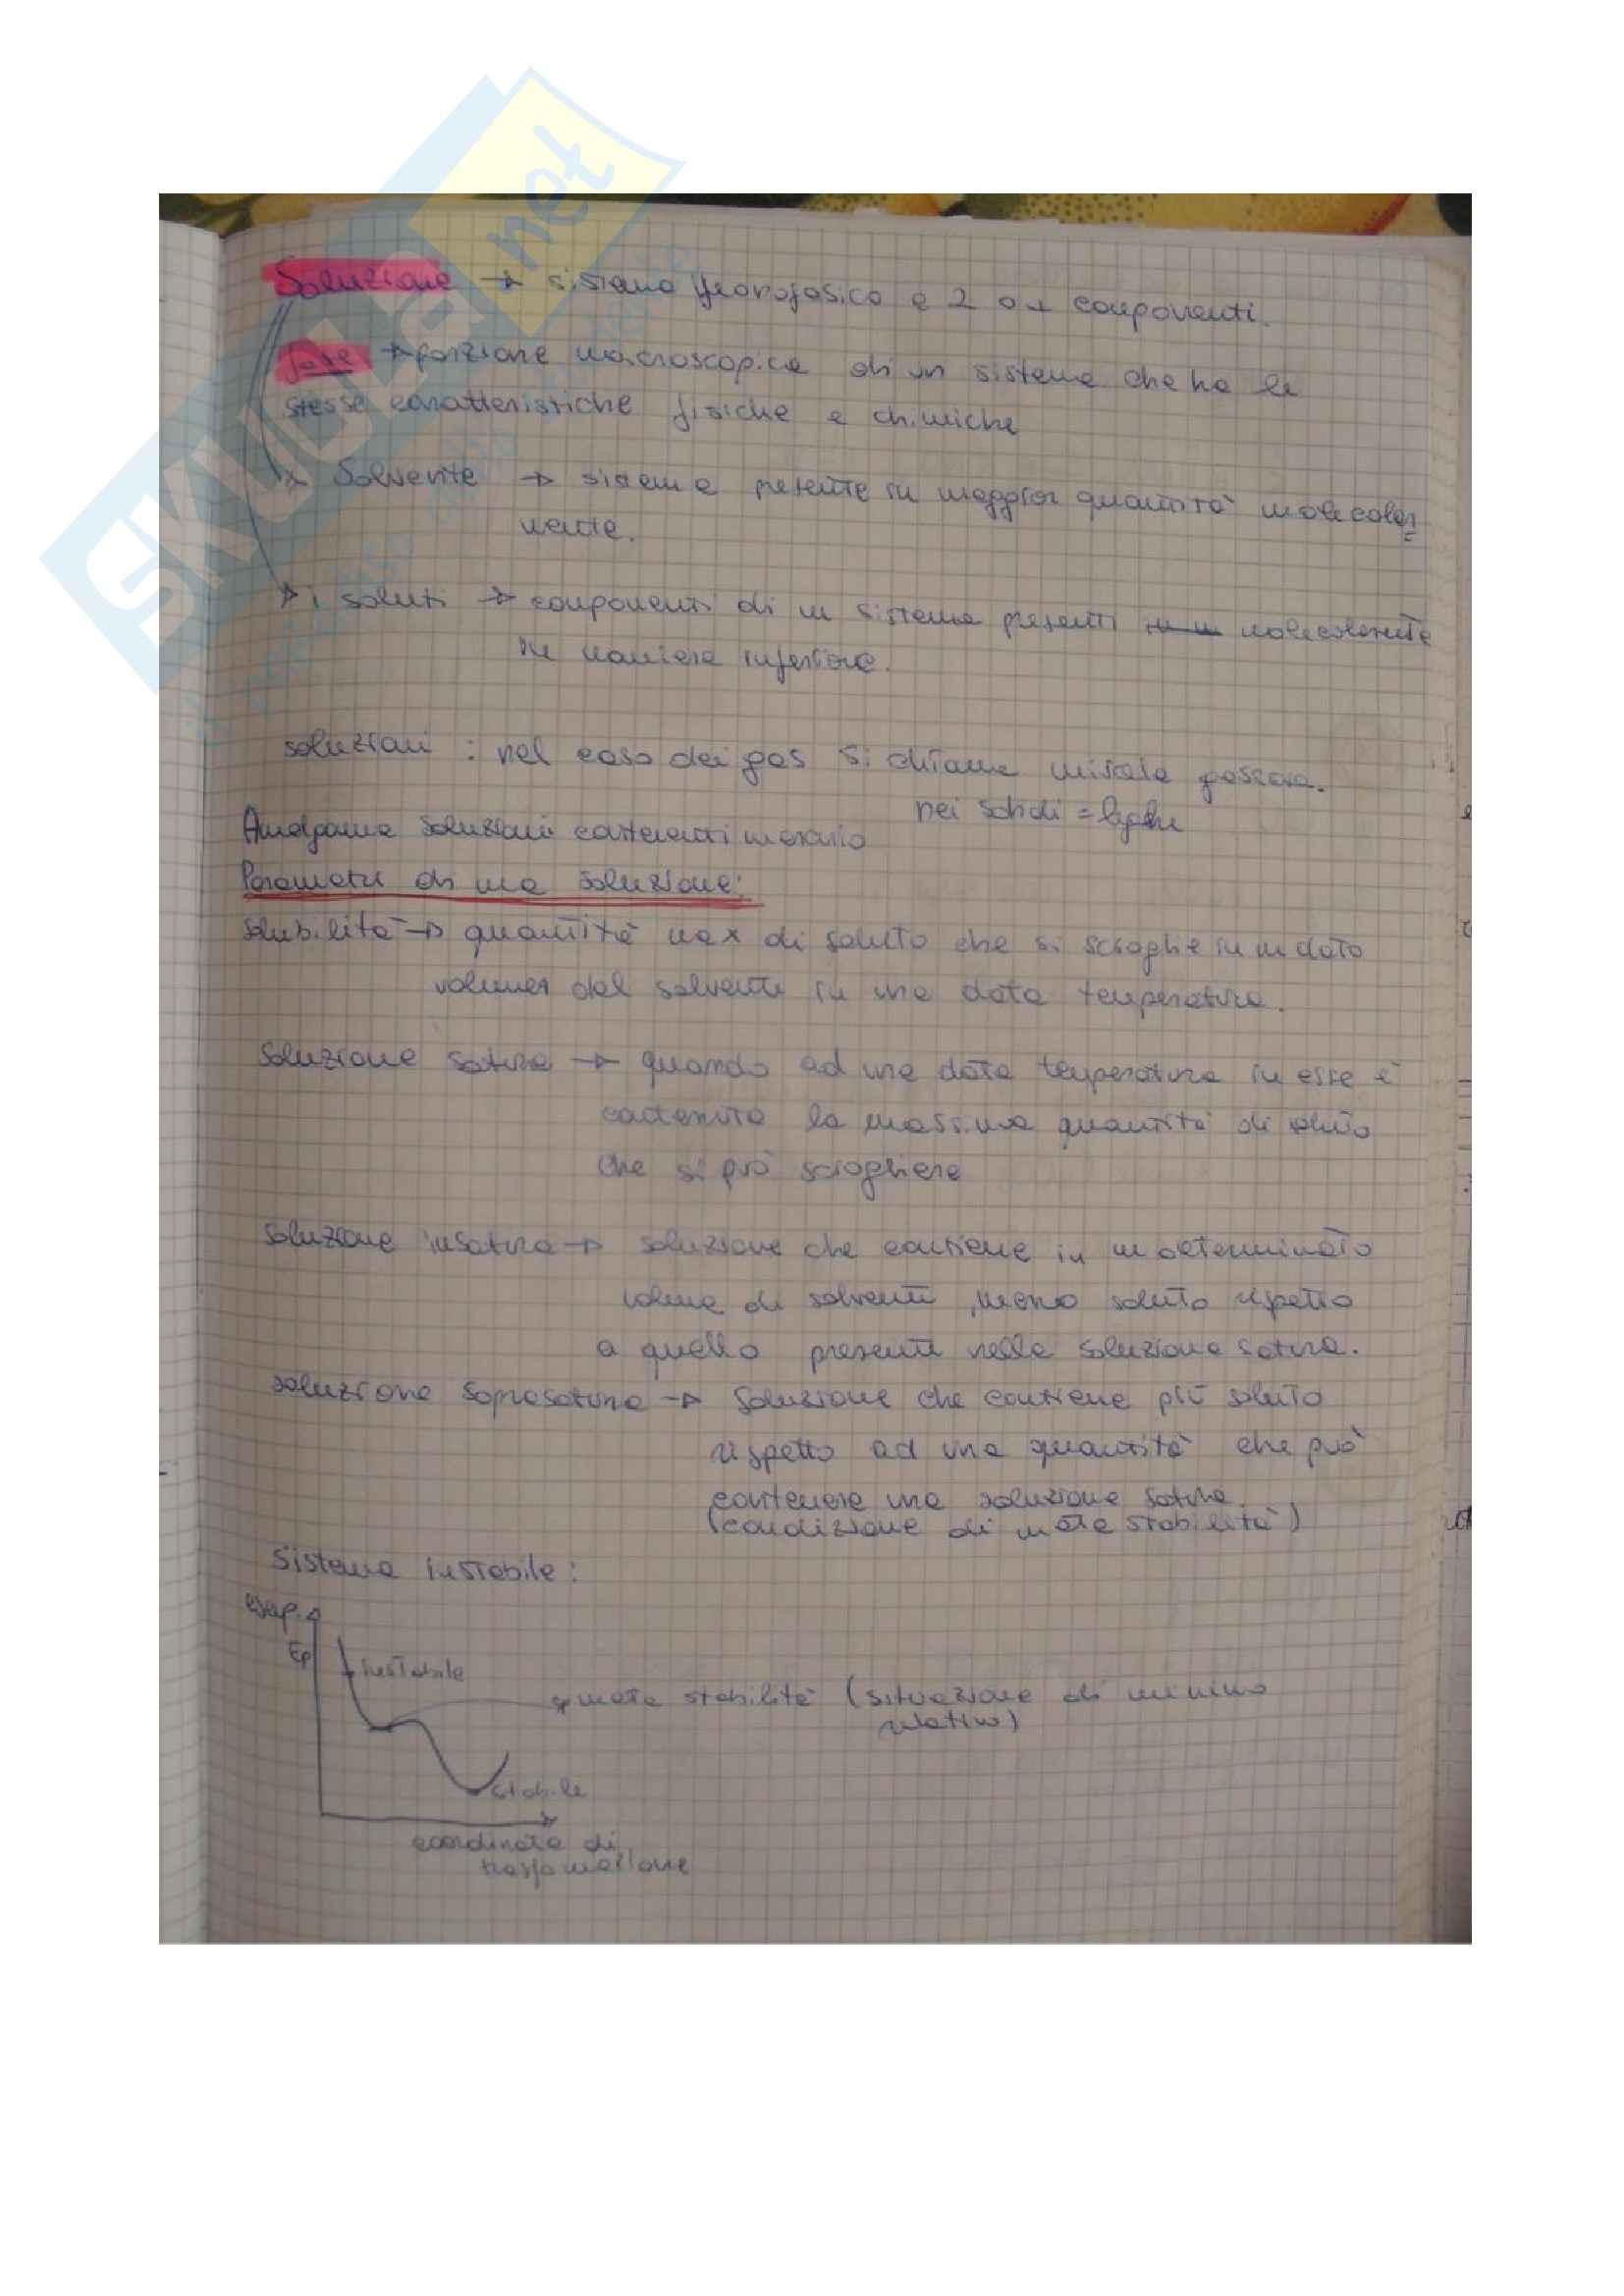 SKUOLA.net
Soluzione → sistema monofasico a 2 o + componenti.
fase → porzione macroscopica di un sistema che ha le
stesse caratteristiche fisiche e chimiche
Solvente → sistema presente in maggior quantità molecolar
mente.
i soluti → componenti di un sistema presenti molecolarmente
in maniera inferiore.
soluzioni : nel caso dei gas si chiama miscela gassosa.
nei solidi = leghe
Amalgama soluzioni contenenti mercurio
Parametri di una soluzione:
Solubilità → quantità max di soluto che si scioglie in un dato
volume del solvente in una data temperatura.
Soluzione satura → quando ad una data temperatura in essa è
contenuta la massima quantità di soluto
che si può sciogliere
Soluzione insatura → soluzione che contiene in un determinato
volume di solvente, meno soluto rispetto
a quello presente nella soluzione satura.
soluzione soprasatura → soluzione che contiene più soluto
rispetto ad una quantità che può
contenere una soluzione satura.
(condizione di meta stabilità)
Sistema instabile:
Ep
instabile
meta stabilità (situazione di minimo
relativo)
stabile
coordinata di
trasformazione